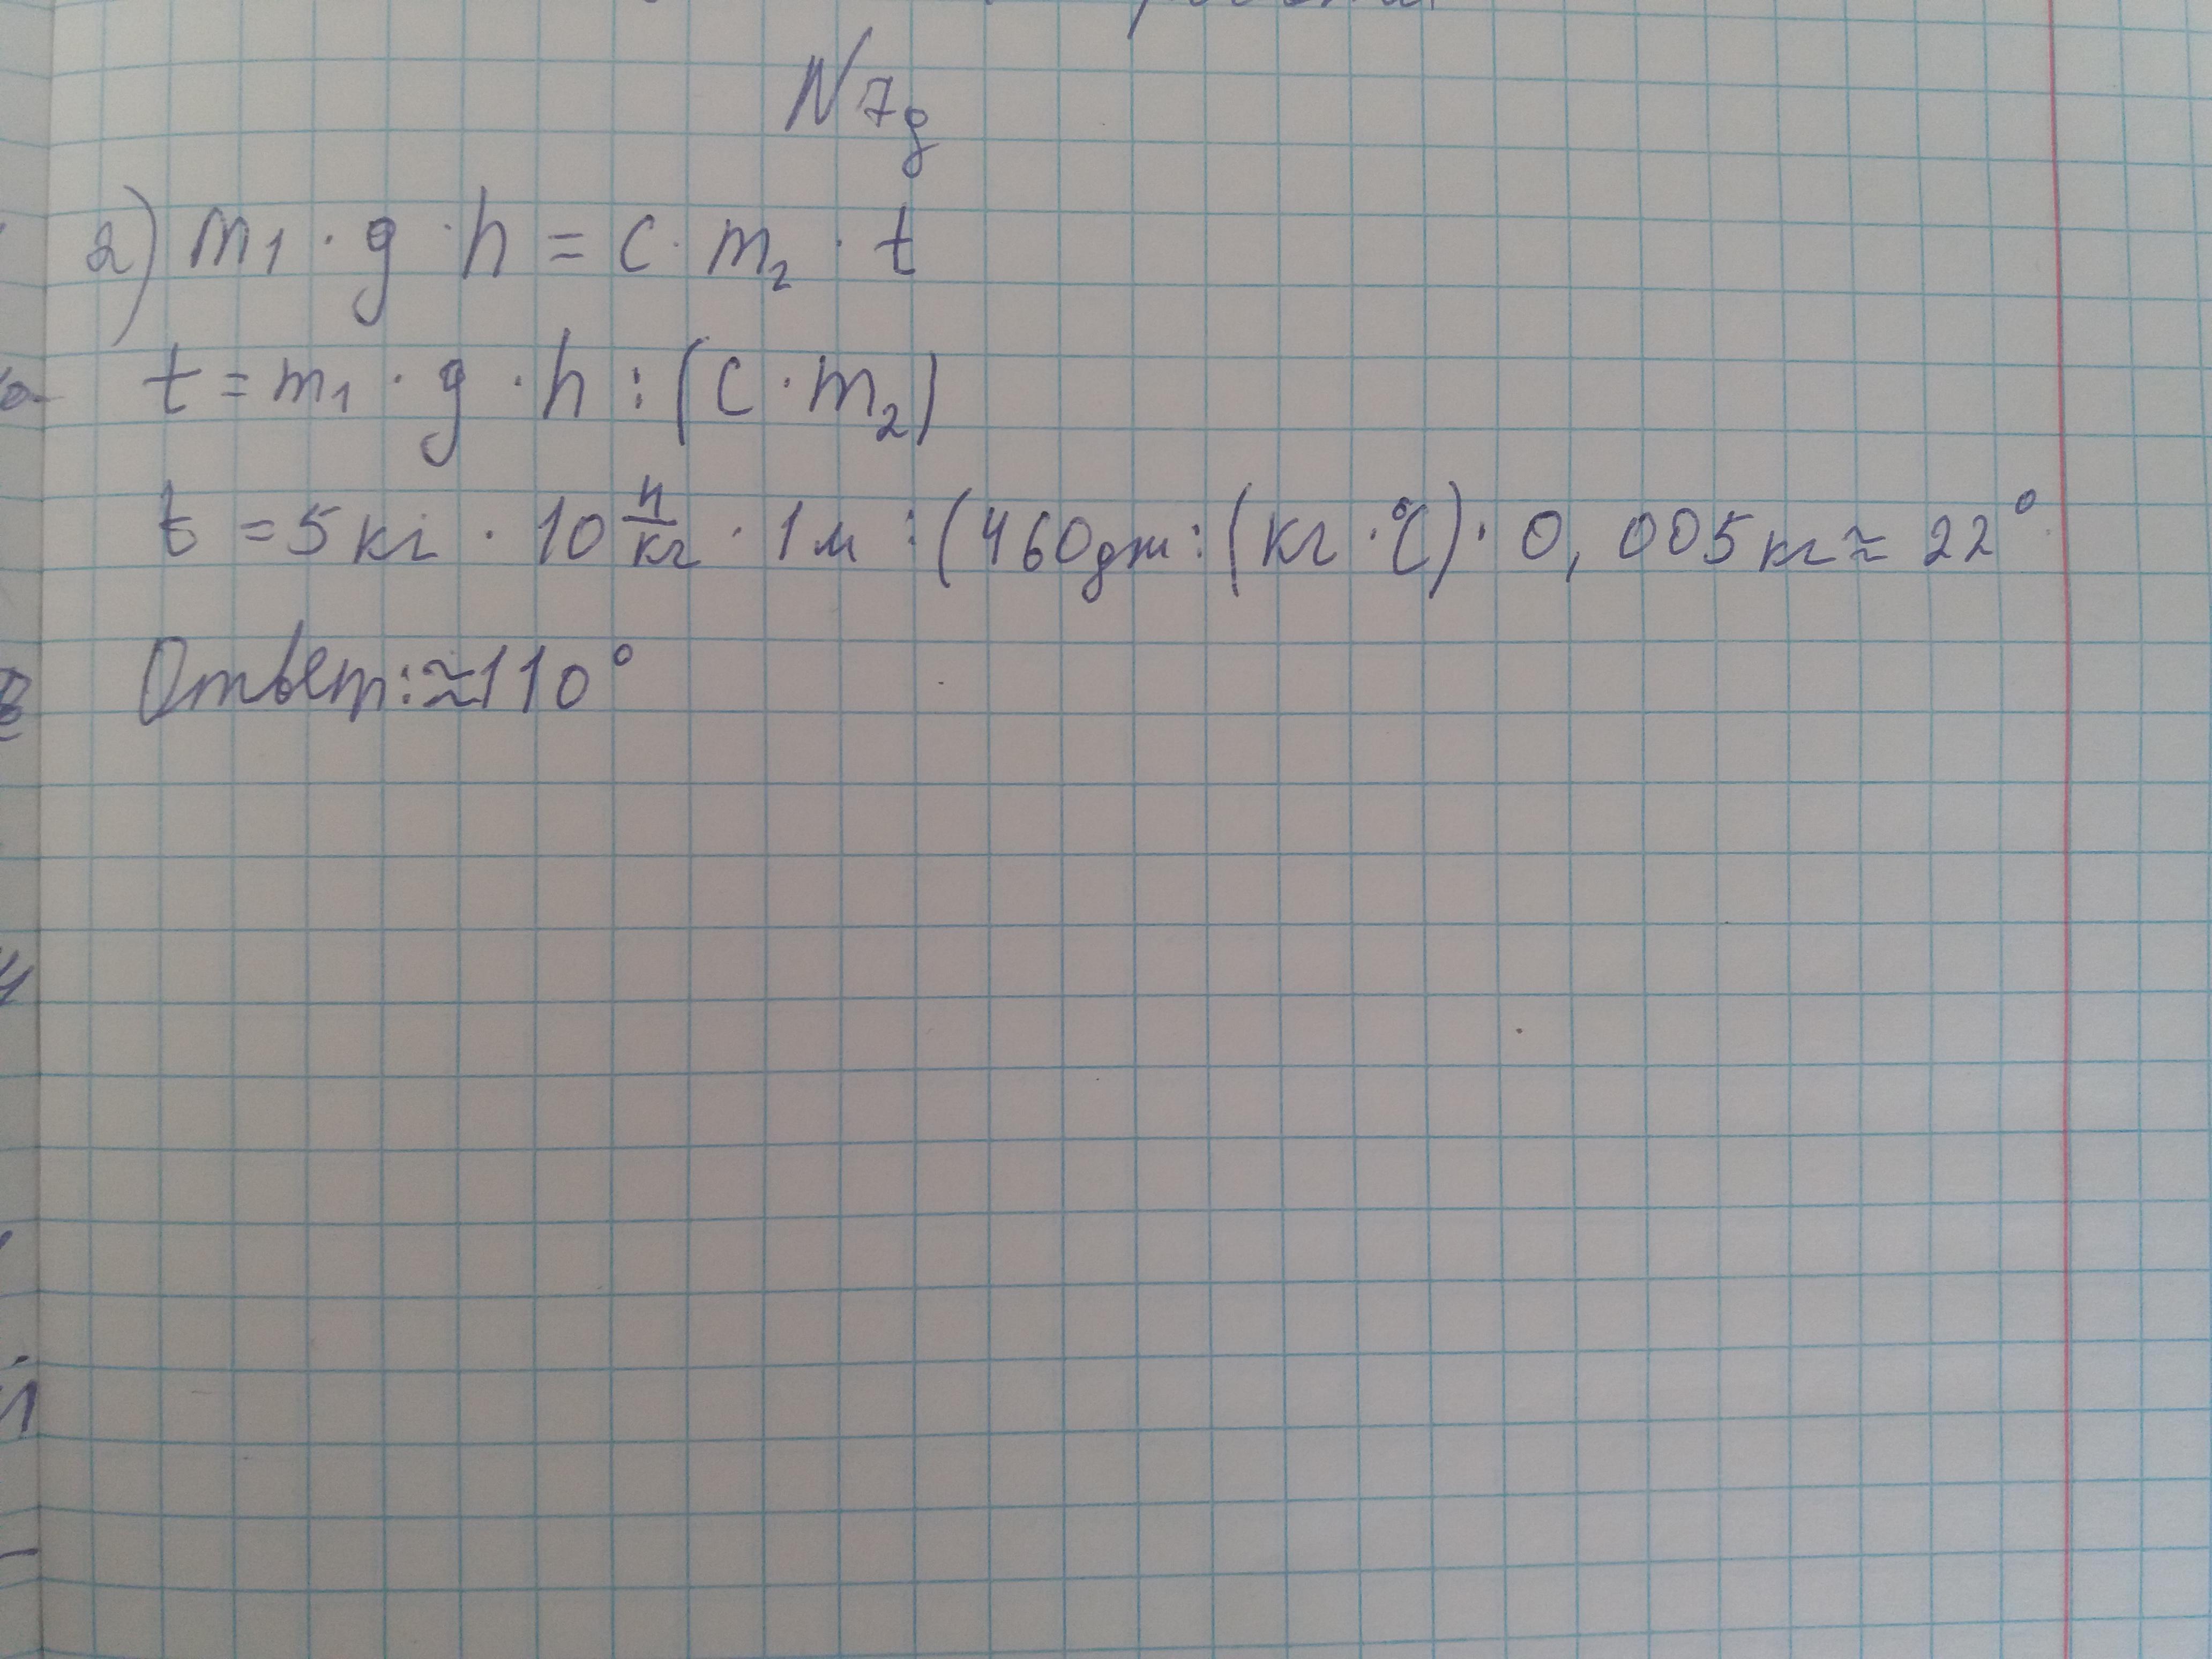 N7g
2) m₁ · g · h = c · m₂ · t
t = m₁ · g · h : (c · m₂)
t = 5 кг · 10 Н/кг · 1 м : (460 дж : (кг · °C) · 0,005 кг ≈ 22°
Ответ: ≈ 110°